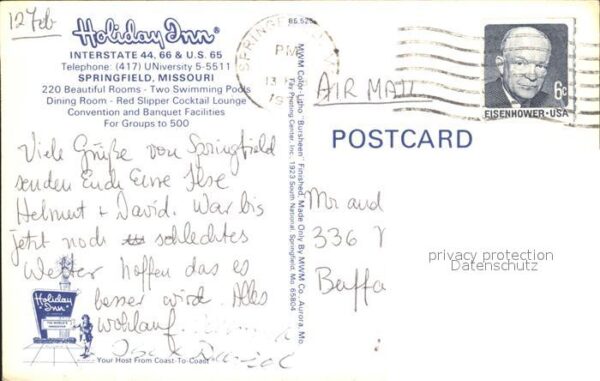 12 Feb
Holiday Inn®
INTERSTATE 44, 66 & U.S. 65
Telephone: (417) UNiversity 5-5511
SPRINGFIELD, MISSOURI
220 Beautiful Rooms - Two Swimming Pools
Dining Room - Red Slipper Cocktail Lounge
Convention and Banquet Facilities
For Groups to 500
Viele Grüße von Springfield
senden Euch Eure Ilse
Helmut + David. War bis
jetzt noch schlechtes
Wetter hoffen das es
besser wird. Alles
wohlauf.
Holiday Inn
Your Host From Coast-To-Coast
MWM Color-Litho "Bursheen" Finished. Made Only By MWM Co., Aurora, Mo.
Printing Center, Inc. 1923 South National, Springfield, Mo. 65804
SPRINGFIELD
PM
13
19
AIR MAIL
6c
EISENHOWER·USA
POSTCARD
Mr and
336
Buffa
privacy protection
Datenschutz